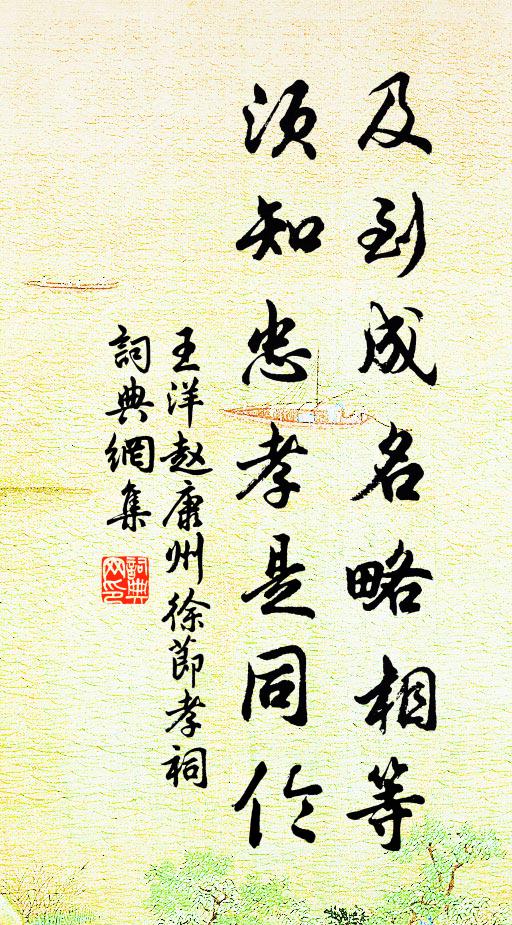 及到成名略相等
須知忠孝是同伦
王洋赵康州徐節孝祠
詞典網集
詞典
网印